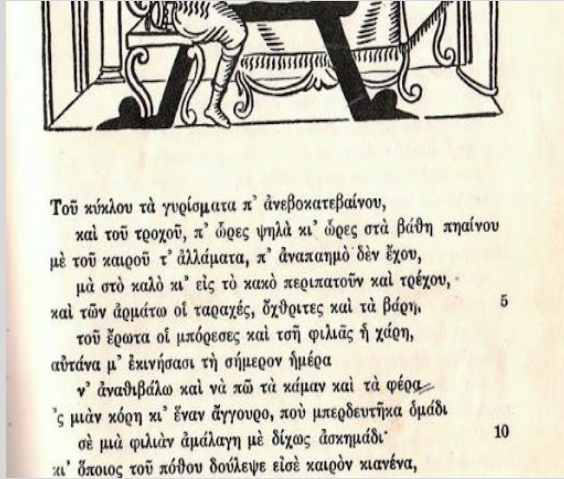 Τοῦ κύκλου τὰ γυρίσματα π' ἀνεβοκατεβαίνου,
καὶ τοῦ τροχοῦ, π' ὧρες ψηλὰ κι' ὧρες στὰ βάθη πηαίνου
μὲ τοῦ καιροῦ τ' ἀλλάματα, π' ἀναπαημὸ δὲν ἔχου,
μὰ στὸ καλὸ κι' εἰς τὸ κακὸ περιπατοῦν καὶ τρέχου,
καὶ τῶν ἁρμάτω οἱ ταραχές, ὄχθριτες καὶ τὰ βάρη, 5
τοῦ ἔρωτα οἱ μπόρεσες καὶ τσῆ φιλιᾶς ἡ χάρη,
αὐτάνα μ' ἐκινήσασι τὴ σήμερον ἡμέρα
ν' ἀναθιβάλω καὶ νὰ πῶ τὰ κάμαν καὶ τὰ φέρα
'ς μιὰν κόρη κι' ἕναν ἄγγουρο, ποὺ μπερδευτῆκα ὁμάδι
σὲ μιὰ φιλιὰν ἀμάλαγη μὲ δίχως ἀσκημάδι· 10
κι' ὅποιος τοῦ πόθου δούλεψε εἰσὲ καιρὸν κιανένα,